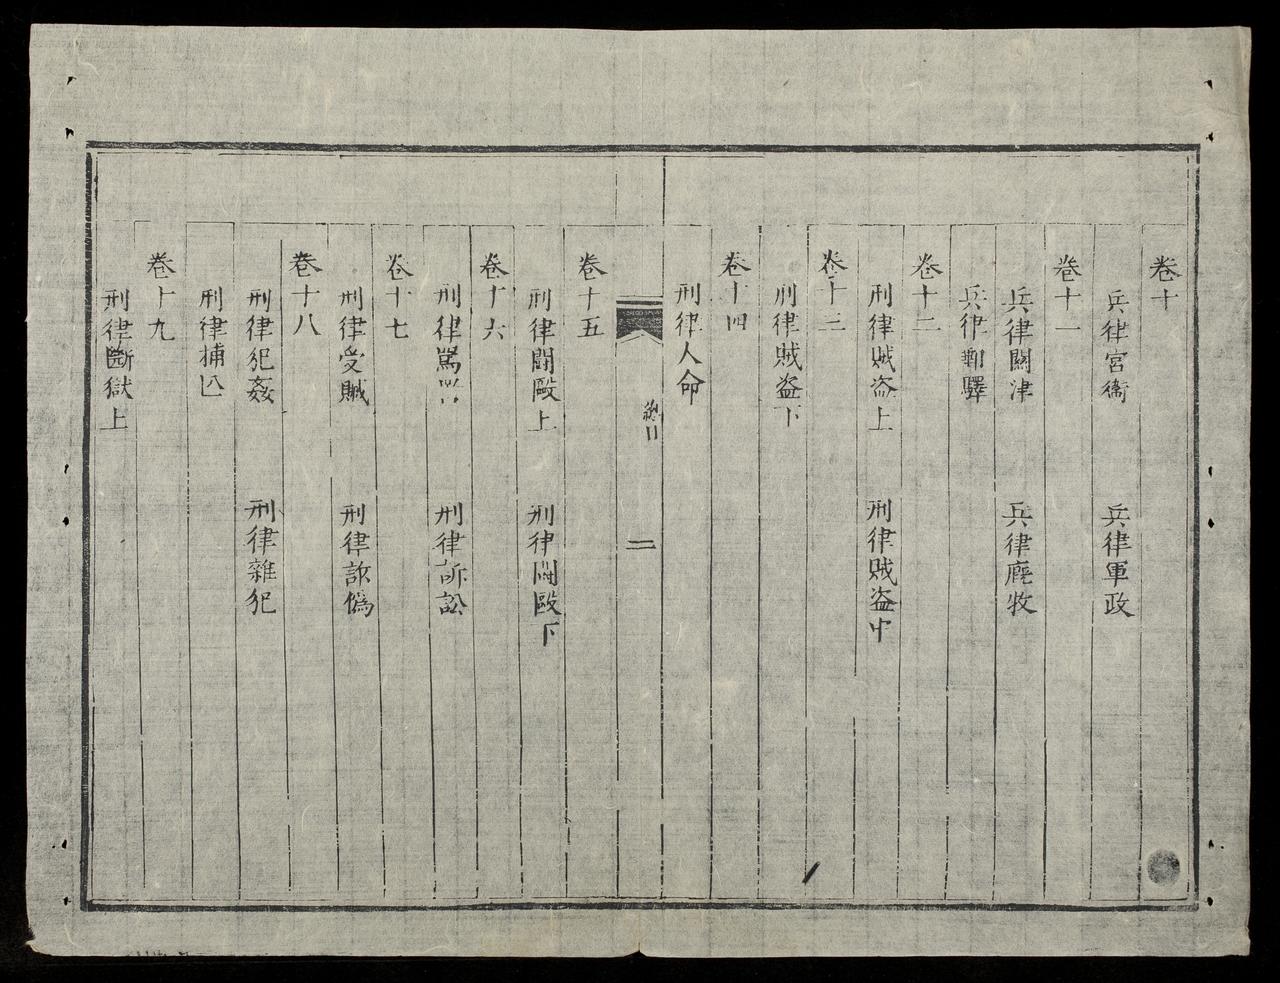 卷十
兵律宮衛　兵律軍政
卷十一
兵律關津　兵律廐牧
兵律郵驛
卷十二
刑律賊盗上　刑律賊盗中
卷十三
刑律賊盗下
卷十四
刑律人命
總目
二
卷十五
刑律鬪毆上　刑律鬪毆下
卷十六
刑律罵詈　刑律訴訟
卷十七
刑律受贓　刑律詐僞
卷十八
刑律犯姦　刑律雜犯
刑律捕亡
卷十九
刑律斷獄上